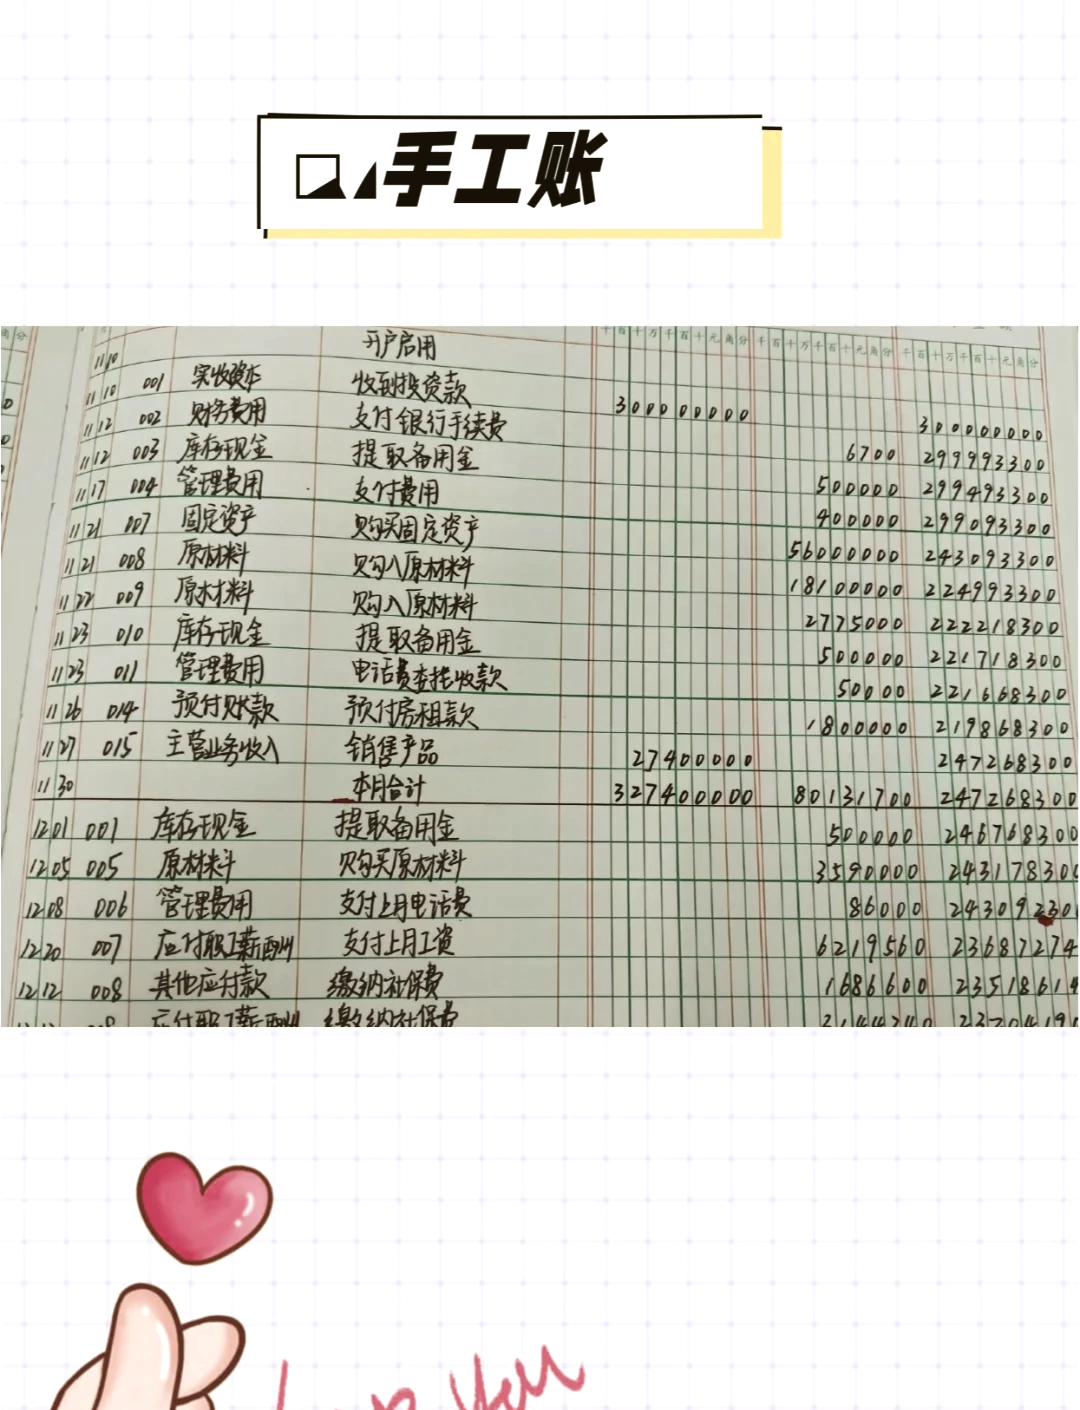 手工账
11 10 开户启用
11 10 001 实收资本 收到投资款 300000000 300000000
11 12 002 财务费用 支付银行手续费 6700 299993300
11 12 003 库存现金 提取备用金 500000 299493300
11 17 004 管理费用 支付费用 400000 299093300
11 21 007 固定资产 购买固定资产 56000000 243093300
11 21 008 原材料 购入原材料 18100000 224993300
11 22 009 原材料 购入原材料 2775000 222218300
11 23 010 库存现金 提取备用金 500000 221718300
11 23 011 管理费用 电话费委托收款 50000 221668300
11 26 014 预付账款 预付房租款 1800000 219868300
11 27 015 主营业务收入 销售产品 27400000 247268300
11 30 本月合计 327400000 80131700 247268300
12 01 001 库存现金 提取备用金 500000 246768300
12 05 005 原材料 购买原材料 3590000 243178300
12 08 006 管理费用 支付上月电话费 86000 24309230
12 20 007 应付职工薪酬 支付上月工资 6219560 23687274
12 12 008 其他应付款 缴纳社保费 1686600 23518614
应付职工薪酬 缴纳社保费
you